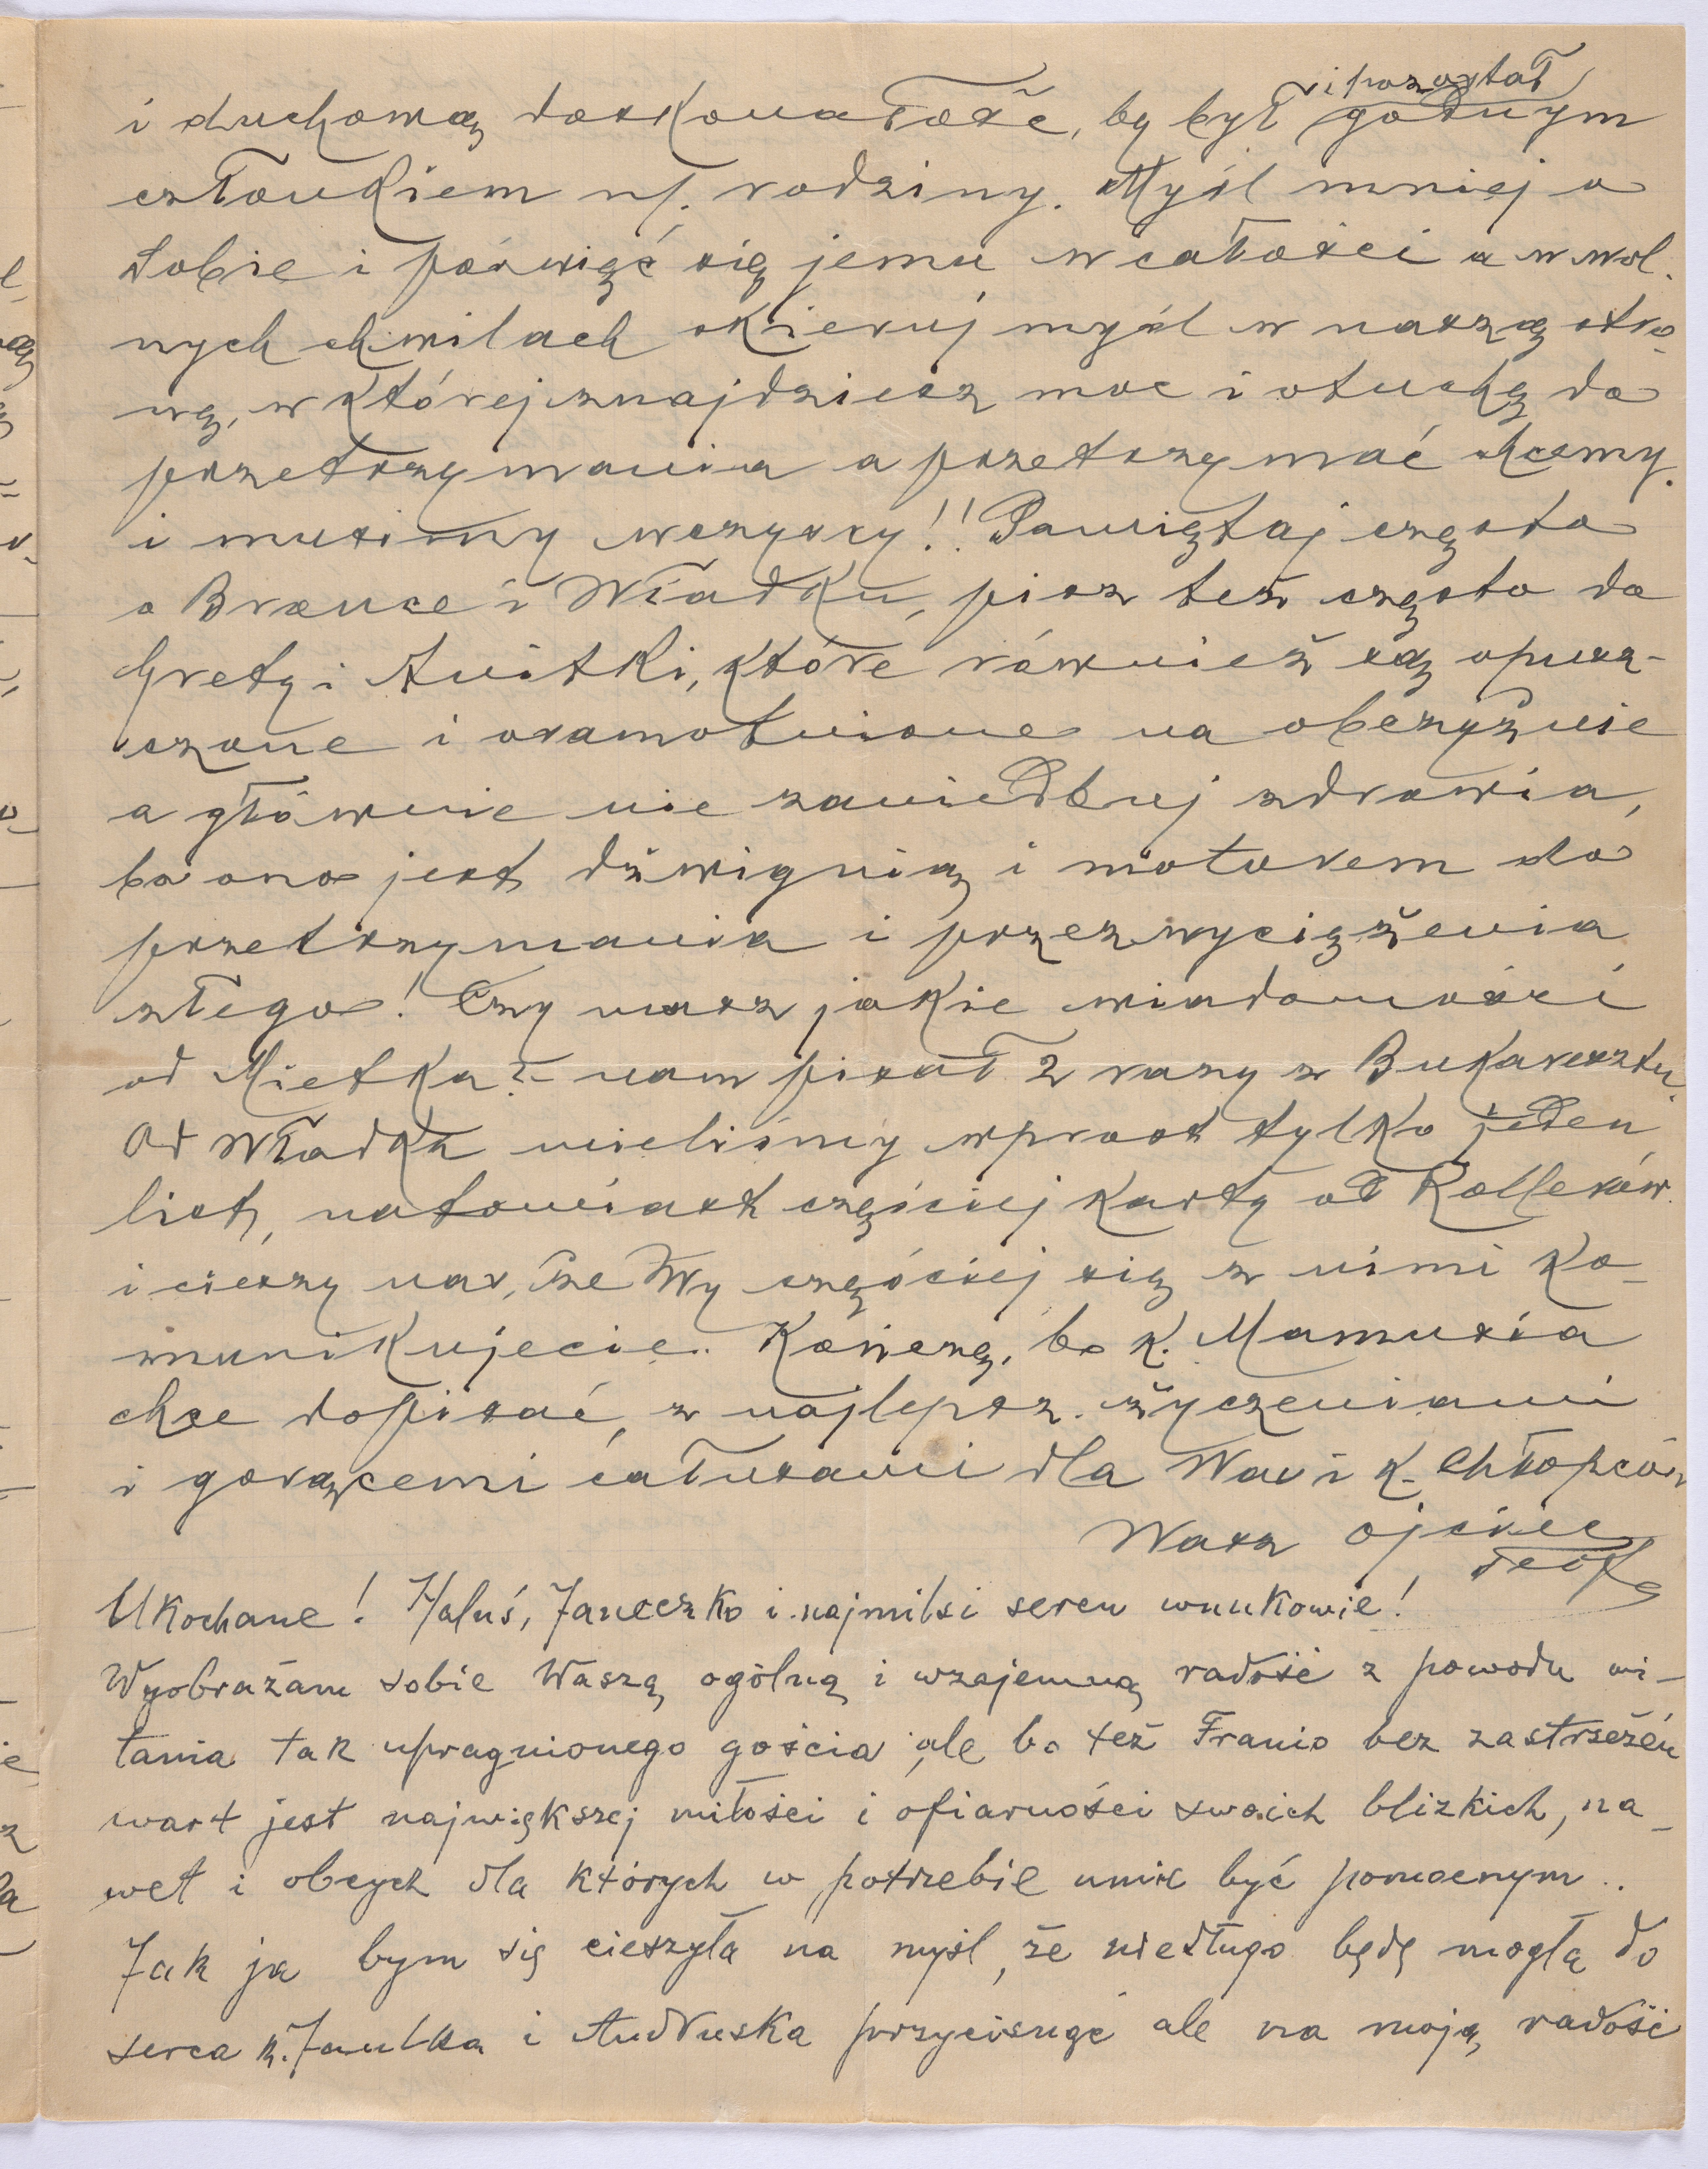 i duchową doskonałość, by był i pozostał godnym
członkiem n/. rodziny. Myśl mniej o
Sobie i poświęć się jemu w całości a w wol-
nych chwilach skieruj myśl w naszą stro-
nę, w której znajdziesz moc i otuchę do
przetrzymania a przetrzymać chcemy
i musimy wszyscy!! Pamiętaj często
o Bronce i Władku, pisz też często do
Grety i Anitki, które również są opusz-
czone i osamotnione na obczyźnie
a głównie nie zaniedbuj zdrowia,
bo ono jest dźwignią i motorem do
przetrzymania i przezwyciężenia
złego! Czy masz jakie wiadomości
od Mietka? - nam pisał 2 razy z Bukaresztu.
Od Władka mieliśmy wprost tylko jeden
list, natomiast częściej karty od
i cieszy nas, że Wy częściej się z nimi ko-
munikujecie. Kończę, bo k. Mamusia
chce dopisać, z najlepsz. życzeniami
i gorącemi całusami dla Was i k. Chłopców
Wasz ojciec
Teof
Ukochane! Haluś, Janeczko i najmilsi sercu wnukowie!
Wyobrażam sobie Waszą ogólną i wzajemną radość z powodu wi-
tania tak upragnionego gościa ale bo też Franio bez zastrzeżeń
wart jest największej miłości i ofiarności swoich blizkich, na-
wet i obcych dla których w potrzebie umie być pomocnym..
Jak ja bym się cieszyła na myśl, że niedługo będę mogła do
serca k. Janulka i Andruska przycisnąć ale na moją radość